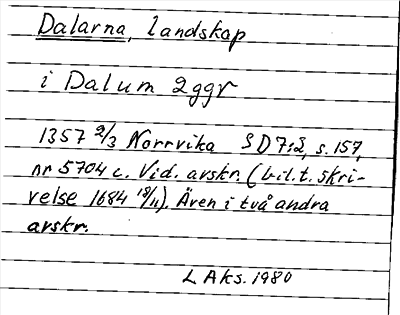 Dalarna, landskap
i Dalum 2ggr
1357 2/3 Norrvika SD7:2, s. 157,
nr 5704 c. Vid. avskr. (bil. t. skri-
velse 1684 18/11). Även i två andra
avskr.
L Aks. 1980